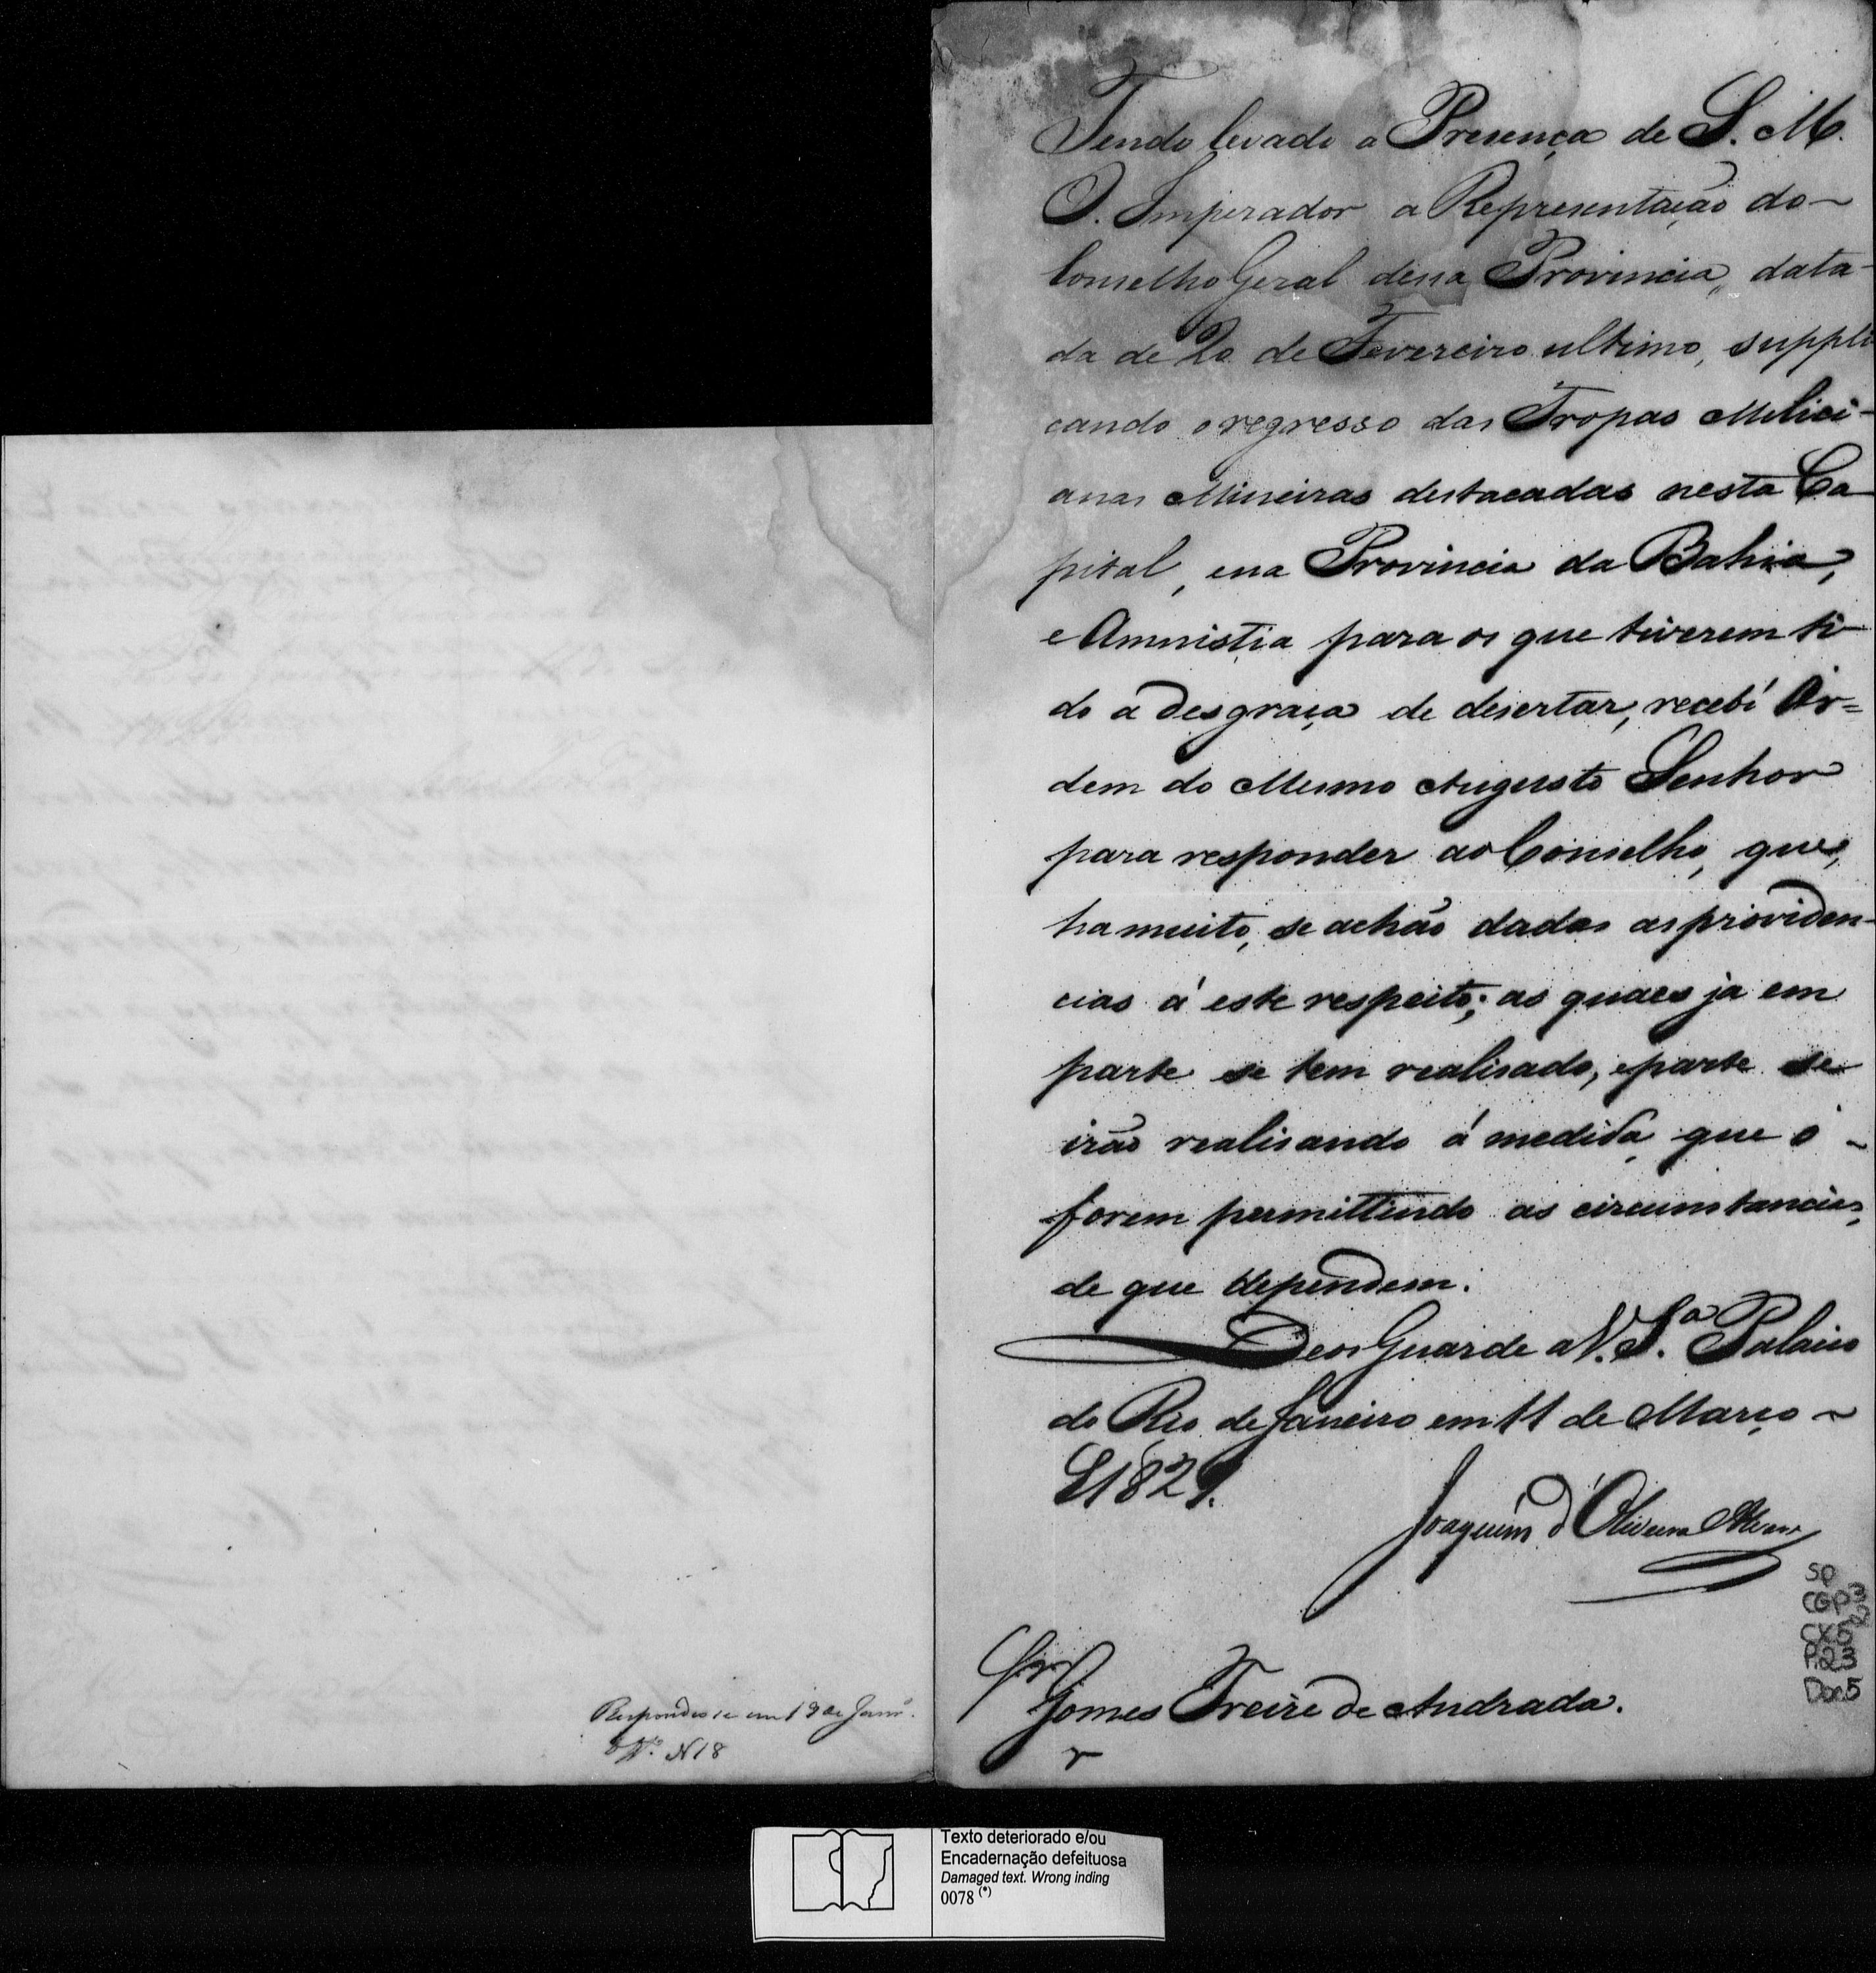 Tendo levado a Presença de S. M.
O. Imperador a Representação do
Conselho Geral dessa Provincia, data-
da de 20 de Fevereiro ultimo, suppli
cando o regresso das Tropas Milici-
anas Mineiras destacadas nesta Ca
pital, e na Provincia da Bahia,
e Amnistia para os que tiverem ti
do a desgraça de desertar, recebi Or=
dem do Mesmo Augusto Senhor
para responder ao Conselho, que,
ha muito, se achão dadas as providen-
cias á este respeito; as quaes ja em
parte se tem realisado, e parte se
irão realisando á medida, que o
forem permittindo as circumstancias,
de que dependem.
Deos Guarde a V. S.ª Palacio
do Rio de Janeiro em 11 de Março
1829.
Joaquim d'Oliveira Alvares
Snr
Gomes Freire de Andrada.
Respondeo se em 19 de
N 18
SP
CGP3
CX5
P.23
Doc.5
Texto deteriorado e/ou
Encadernação defeituosa
Damaged text. Wrong inding
0078 (*)